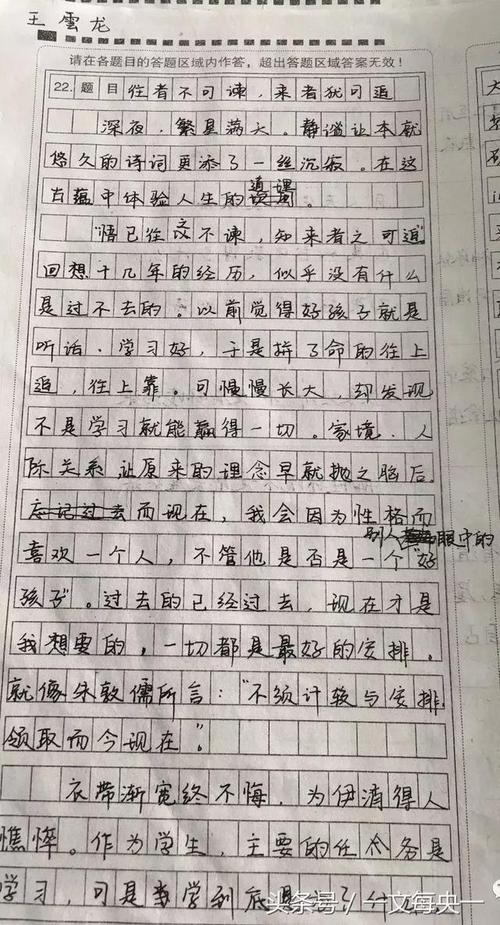 王雲龙
请在各题目的答题区域内作答，超出答题区域答案无效！
22.题目往者不可谏，来者犹可追
深夜，繁星满天。静谧让本就
悠久的诗词更添了一丝沉寂。在这
古蕴中体验人生的道理。
"悟已往之不谏，知来者之可追"
回想十几年的经历，似乎没有什么
是过不去的。以前觉得好孩子就是
听话、学习好，于是拼了命的往上
追，往上靠。可慢慢长大，却发现
不是学习就能赢得一切。家境、人
际关系让原来的理念早就抛之脑后
忘记过去而现在，我会因为性格而
喜欢一个人，不管他是否是一个别人眼中的"好
孩子"。过去的已经过去，现在才是
我想要的，一切都是最好的安排。
就像朱敦儒所言："不须计较与安排
领取而今现在"。
衣带渐宽终不悔，为伊消得人
憔悴。作为学生，主要的任务是
学习，可是学到底是为了什
头条号/一文每央一